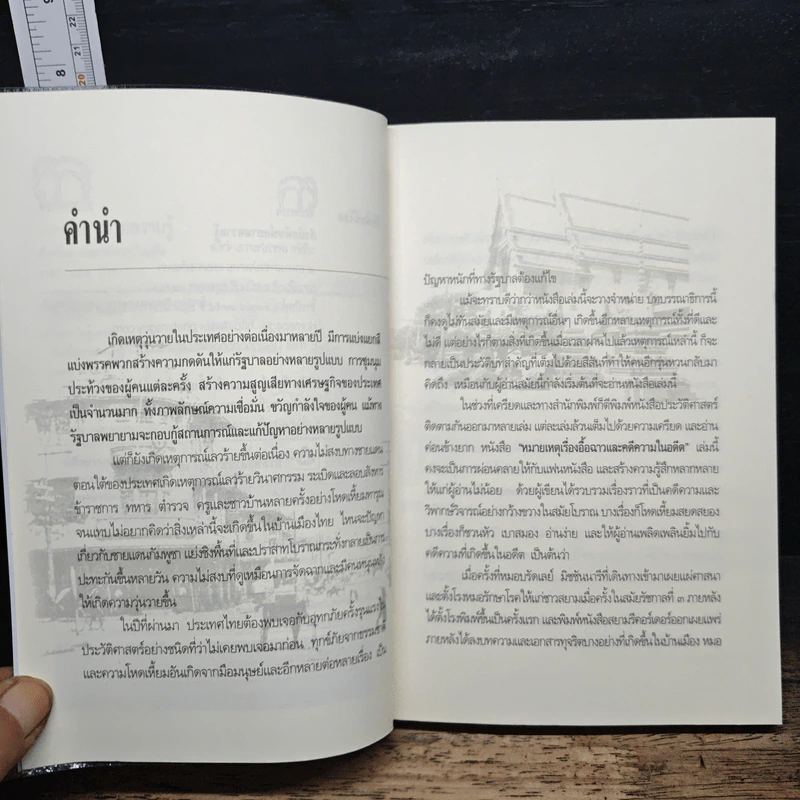 คำนำ
เกิดเหตุวุ่นวายในประเทศอย่างต่อเนื่องมาหลายปี มีการแบ่งแยกสี
แบ่งพรรคพวกสร้างความกดดันให้แก่รัฐบาลอย่างหลายรูปแบบ การชุมนุม
ประท้วงของผู้คนแต่ละครั้ง สร้างความสูญเสียทางเศรษฐกิจของประเทศ
เป็นจำนวนมาก ทั้งภาพลักษณ์ความเชื่อมั่น ขวัญกำลังใจของผู้คน แม้ทาง
รัฐบาลพยายามจะกอบกู้สถานการณ์และแก้ปัญหาอย่างหลายรูปแบบ
แต่ก็ยังเกิดเหตุการณ์เลวร้ายขึ้นต่อเนื่อง ความไม่สงบทางชายแดน
ตอนใต้ของประเทศเกิดเหตุการณ์เลวร้ายวินาศกรรม ระเบิดและลอบสังหาร
ข้าราชการ ทหาร ตำรวจ ครูและชาวบ้านหลายครั้งอย่างโหดเหี้ยมทารุณ
จนแทบไม่อยากคิดว่าสิ่งเหล่านี้จะเกิดขึ้นในบ้านเมืองไทย ไหนจะปัญหา
เกี่ยวกับชายแดนกัมพูชา แย่งชิงพื้นที่และปราสาทโบราณกระทั่งกลายเป็นการ
ปะทะกันขึ้นหลายวัน ความไม่สงบที่ดูเหมือนการจัดฉากและมีคนหนุนหลัง
ให้เกิดความวุ่นวายขึ้น
ในปีที่ผ่านมา ประเทศไทยต้องพบเจอกับอุทกภัยครั้งรุนแรงใน
ประวัติศาสตร์อย่างชนิดที่ว่าไม่เคยพบเจอมาก่อน ทุกข์ภัยจากธรรมชาติ
และความโหดเหี้ยมอันเกิดจากมือมนุษย์และอีกหลายต่อหลายเรื่อง เป็น
ปัญหาหนักที่ทางรัฐบาลต้องแก้ไข
แม้จะทราบดีว่ากว่าหนังสือเล่มนี้จะวางจำหน่าย บทบรรณาธิการนี้
ก็คงดูไม่ทันสมัยและมีเหตุการณ์อื่นๆ เกิดขึ้นอีกหลายเหตุการณ์ทั้งที่ดีและ
ไม่ดี แต่อย่างไรก็ตามสิ่งที่เกิดขึ้นเมื่อเวลาผ่านไปแล้วเหตุการณ์เหล่านี้ ก็จะ
กลายเป็นประวัติบทสำคัญที่เต็มไปด้วยสีสันที่ทำให้คนอีกรุ่นหวนกลับมา
คิดถึง เหมือนกับผู้อ่านสมัยนี้กำลังเริ่มต้นที่จะอ่านหนังสือเล่มนี้
ในช่วงที่เครียดและทางสำนักพิมพ์ก็ตีพิมพ์หนังสือประวัติศาสตร์
ติดตามกันออกมาหลายเล่ม แต่ละเล่มล้วนเต็มไปด้วยความเครียด และอ่าน
ค่อนข้างยาก หนังสือ "หมายเหตุเรื่องอื้อฉาวและคดีความในอดีต" เล่มนี้
คงจะเป็นการผ่อนคลายให้กับแฟนหนังสือ และสร้างความรู้สึกหลากหลาย
ให้แก่ผู้อ่านไม่น้อย ด้วยผู้เขียนได้รวบรวมเรื่องราวที่เป็นคดีความและ
วิพากษ์วิจารณ์อย่างกว้างขวางในสมัยโบราณ บางเรื่องก็โหดเหี้ยมสยดสยอง
บางเรื่องก็ชวนหัว เบาสมอง อ่านง่าย และให้ผู้อ่านเพลิดเพลินยิ้มไปกับ
คดีความที่เกิดขึ้นในอดีต เป็นต้นว่า
เมื่อครั้งที่หมอบรัดเลย์ มิชชันนารีที่เดินทางเข้ามาเผยแผ่ศาสนา
และตั้งโรงหมอรักษาโรคให้แก่ชาวสยามเมื่อครั้งในสมัยรัชกาลที่ ๓ ภายหลัง
ได้ตั้งโรงพิมพ์ขึ้นเป็นครั้งแรก และพิมพ์หนังสือสยามรีคอร์เดอร์ออกเผยแพร่
ภายหลังได้ลงบทความและเอกสารทุจริตบางอย่างที่เกิดขึ้นในบ้านเมือง หมอ
9
8
22
21
20